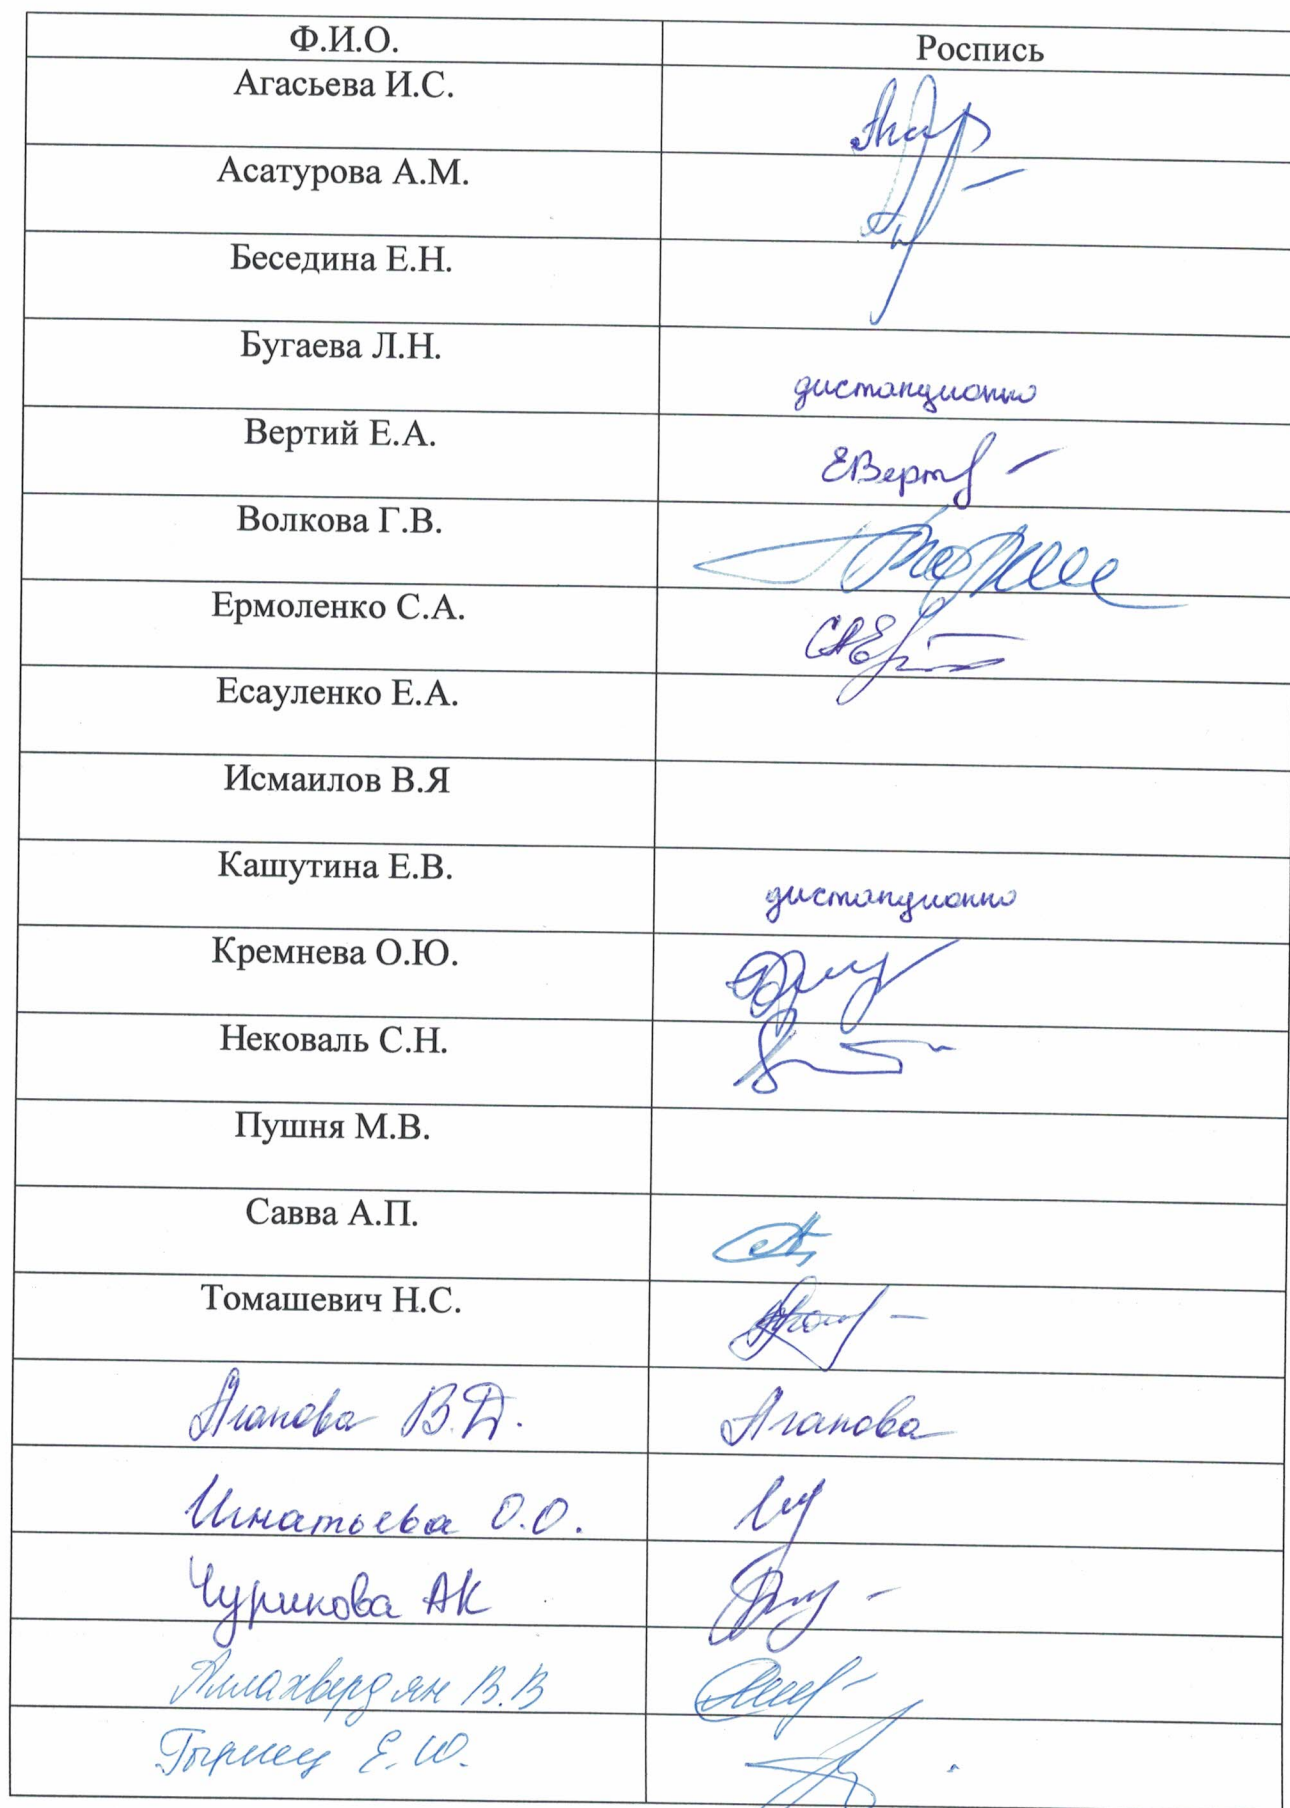 Ф.И.О. Роспись
Агасьева И.С.
Асатурова А.М.
Беседина Е.Н.
Бугаева Л.Н. дистанционно
Вертий Е.А.
Волкова Г.В.
Ермоленко С.А.
Есауленко Е.А.
Исмаилов В.Я
Кашутина Е.В. дистанционно
Кремнева О.Ю.
Нековаль С.Н.
Пушня М.В.
Савва А.П.
Томашевич Н.С.
Агапова В.Д. Агапова
Игнатьева О.О.
Чурикова АК
Аллахвердян В.В
Гырнец Е.Ю.